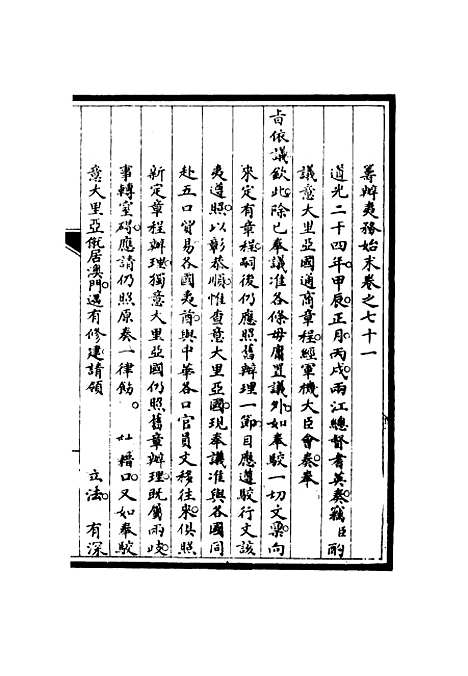 籌辦夷務始末卷之七十一
道光二十四年甲辰正月丙戌兩江總督耆英奏竊臣酌
議意大里亞國通商章程經軍機大臣會奏奉
旨依議欽此除已奉議准各條毋庸置議外如奉駮一切文稟向
來定有章程嗣後仍應照舊辦理一節自應遵駮行文該
夷遵照以彰恭順惟查意大里亞國現奉議准與各國同
赴五口貿易各國夷酋與中華各口官員文移往來俱照
新定章程辦理獨意大里亞國仍照舊章辦理既屬兩歧
事轉窒碍應請仍照原奏一律飭 杜藉口又如奉駮
意大里亞僦居澳門遇有修建請領 立法 有深